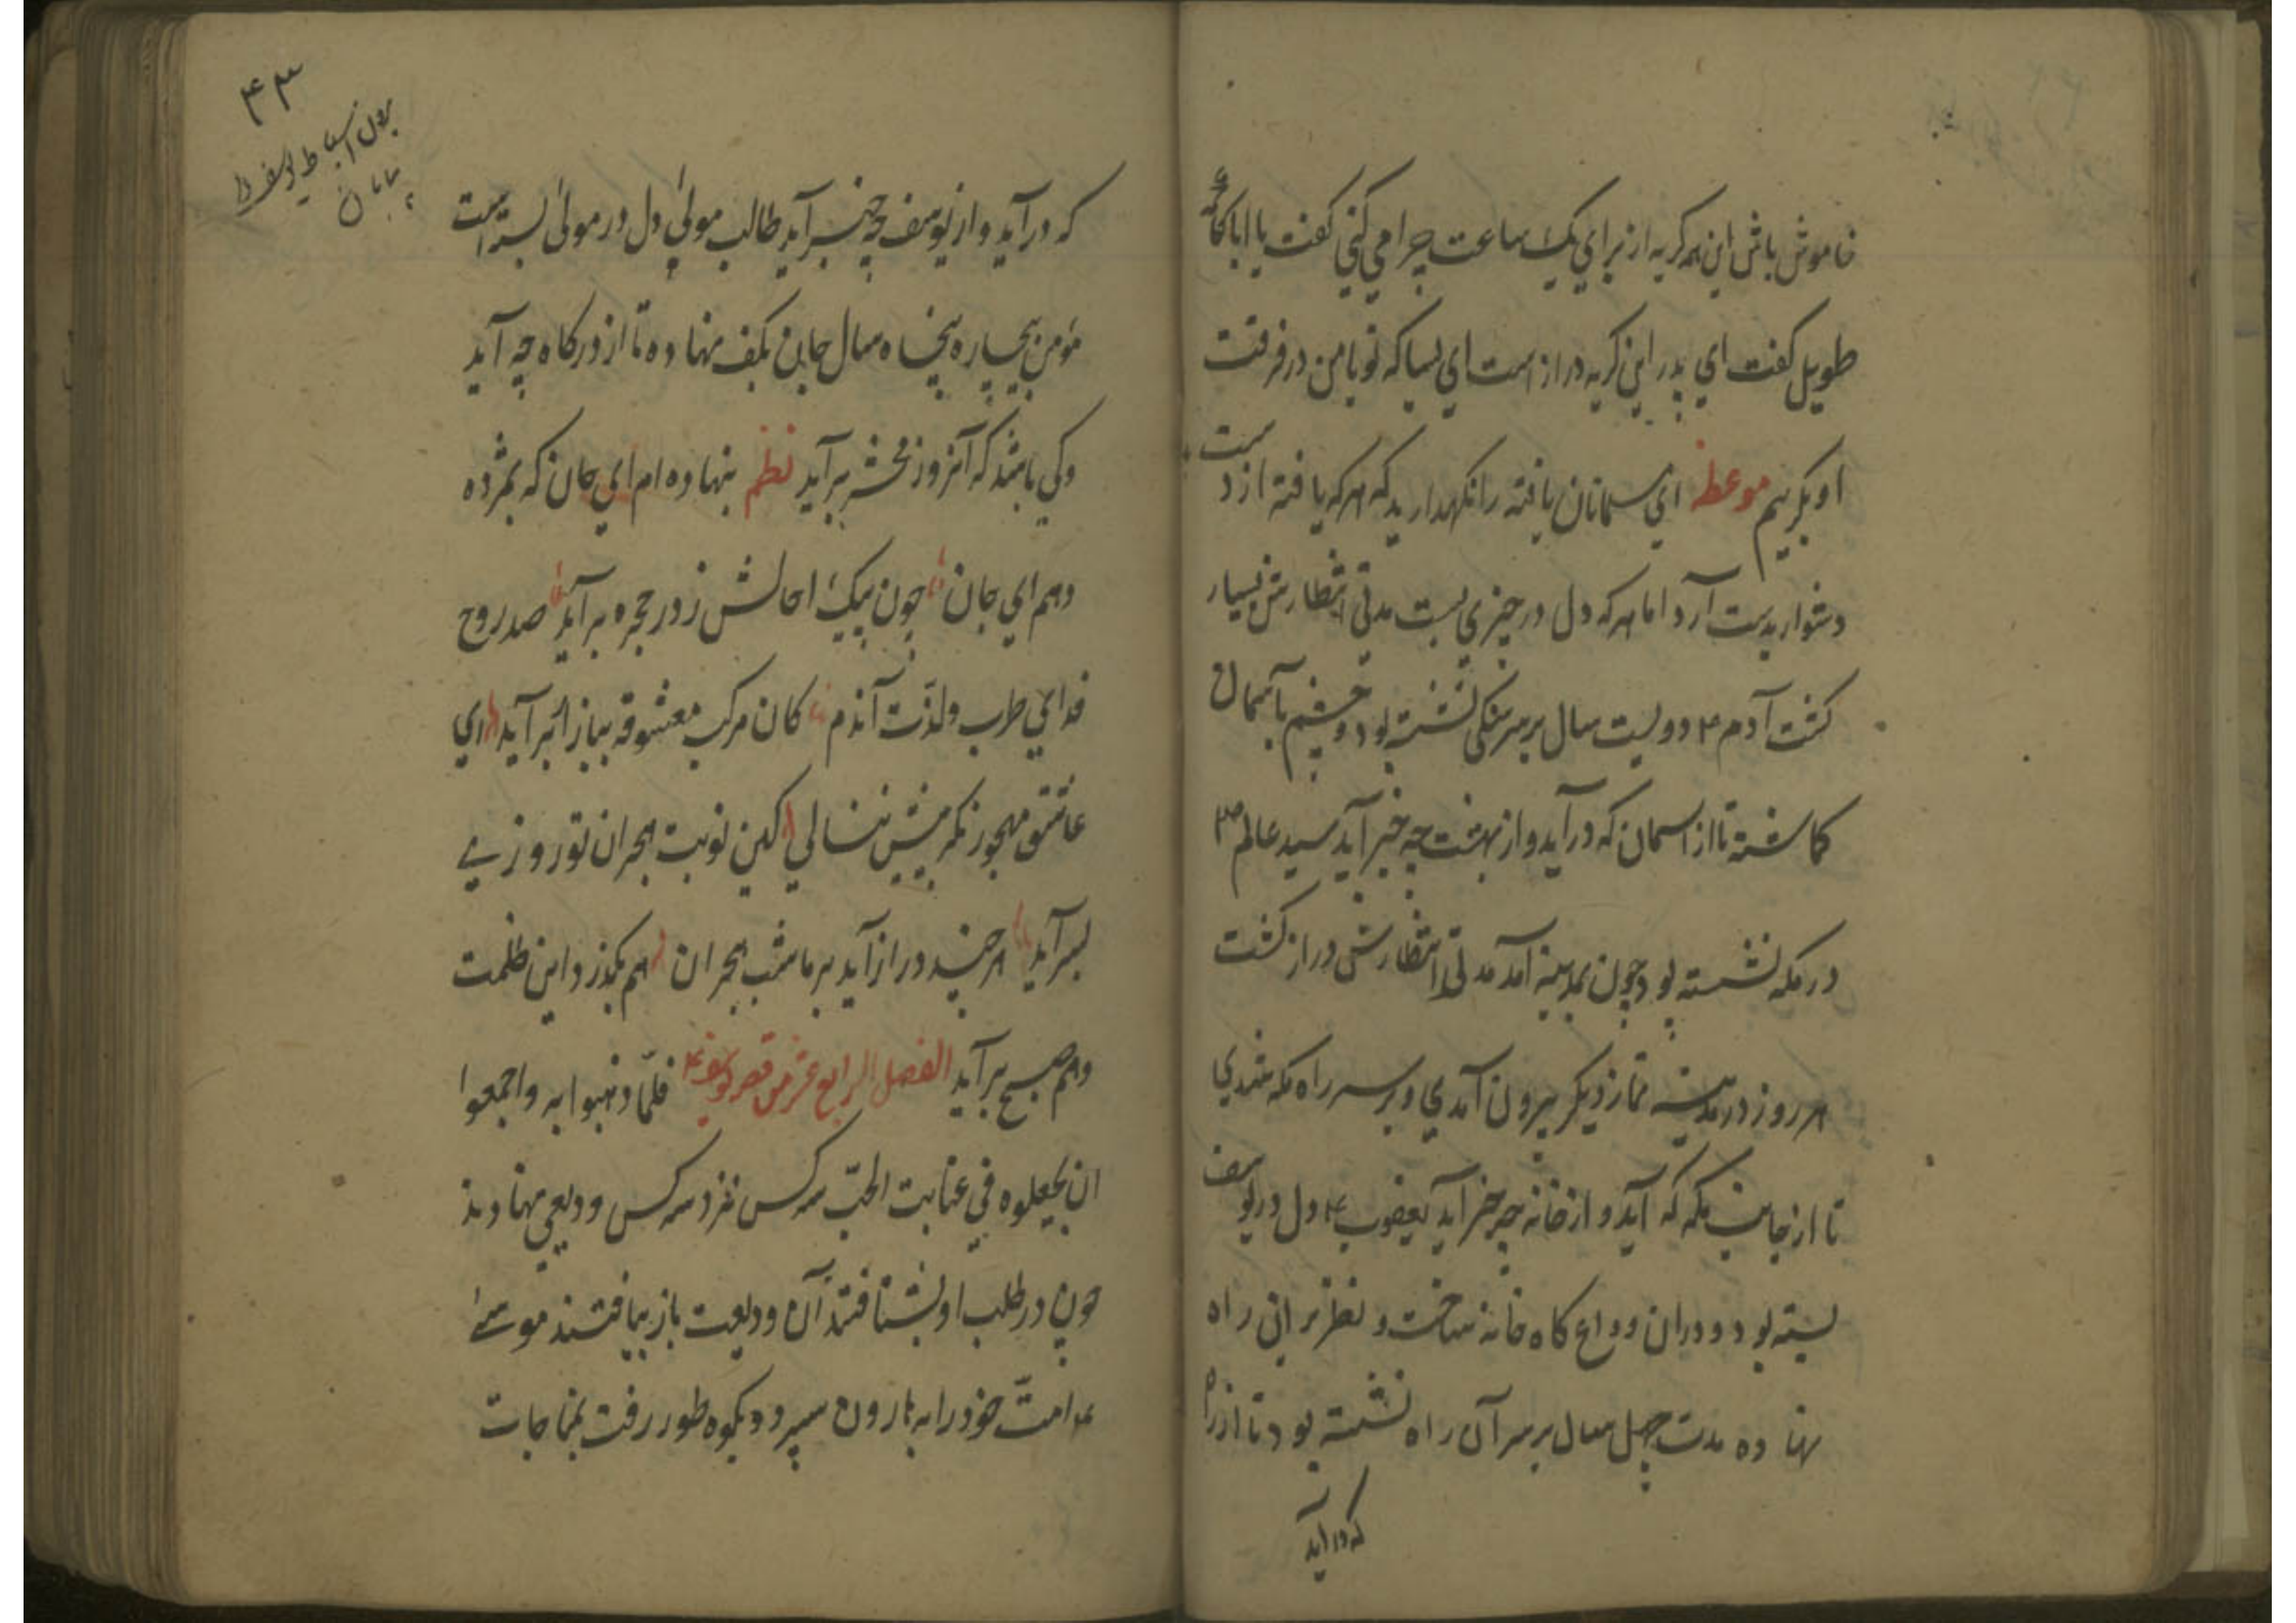 خاموش باش این همه کریه از برای یک ساعت چرا می کنی کفت یا ابا بکاء
طویل کفت ای پدر این کریه دراز است ای بسا که تو با من در فرقت
او بکریم موعظه ای مسلمانان یافته را نکهدارید که هر که یافته از دست
دشوار بدست آرد اما هر که دل در چیزی بست مدتی انتظارش بسیار
کشت آدم ؏ دویست سال بر سر سنکی نشسته بود و چشم بآسمان
کماشته تا از اسمان که درآید و از بهشت چه خبر آید سید عالم ؐ
در مکه نشسته بود چون بمدینه آمد مدتی انتظارش دراز کشت
هر روز در مدینه نماز دیکر بیرون آمدی و بر سر راه مکه شدی
تا از جانب مکه که آید و از خانه چه خبر آید یعقوب ؏ دل در یوسف
بسته بود و دران وداع کاه خانه ساخت و نظر بران راه
نهاده مدت چهل سال بر سر آن راه نشسته بود تا از راه
که درآید
۴۳
بردن اسباط یوسف را
به بیابان
که درآید و از یوسف چه خبر آید طالب مولیٰ دل در مولیٰ بسته است
مؤمن بیچاره پنجاه سال جان بکف نهاده تا از درکاه چه آید
وکی باشد که آنروز محشر برآید نظم بنهاده ام ای جان که بمژده
دهم ای جان چون پیک اجالش ز در حجره برآید صد روح
فدای طرب ولذّت آندم کان مرکب معشوقه بباز ابر آید ای
عاشق مهجور نکر بیش ننالی کین نوبت هجران تو روزی
بسر آید هر چند دراز آید بر ما شب هجران هم بکذرد این ظلمت
وهم صبح برآید الفصل الرابع عشر من قصه یوسف ؏ فلمّا ذهبوا به واجمعوا
ان یجعلوه فی غیابت الجبّ سه کس نزد سه کس ودیعی نهادند
چون در طلب او بشتافتند آن ودیعت باز نیافتند موسیٰ
؏ امتّ خود را به هارون سپرد و بکوه طور رفت بمناجات